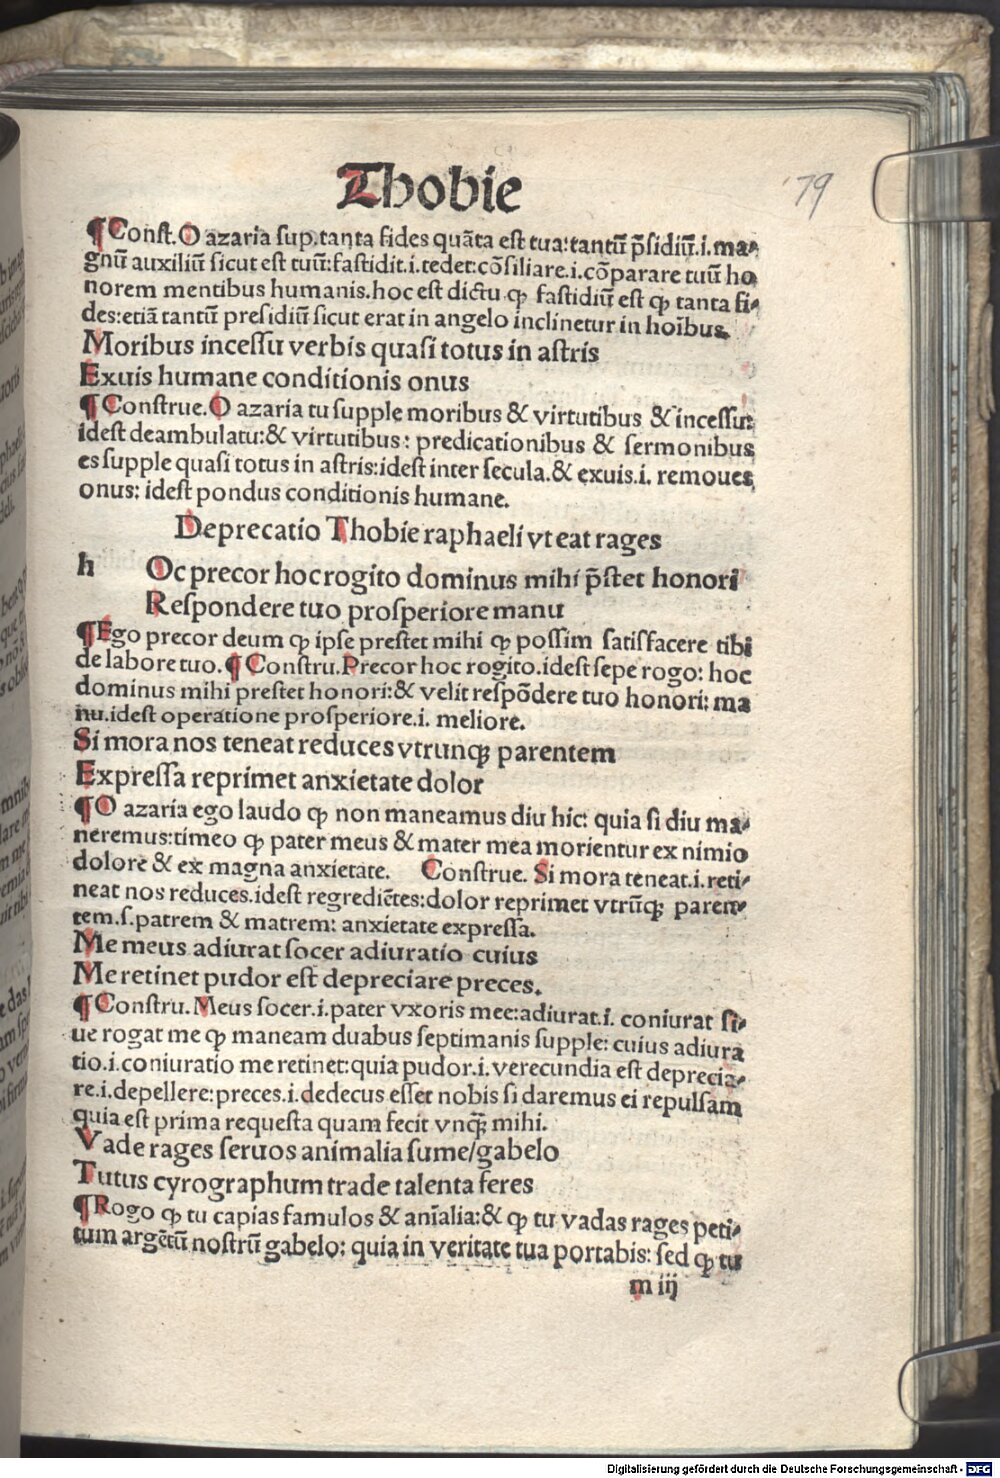 Thobie
79
¶ Const. O azaria sup. tanta fides quãta est tua: tantũ p̃sidiũ .i. ma⸗
gnũ auxiliũ sicut est tuũ: fastidit .i. tedet: cõsiliare .i. cõparare tuũ ho
norem mentibus humanis. hoc est dictu ꝙ fastidiũ est ꝙ tanta fi⸗
des: etiã tantũ presidiũ sicut erat in angelo inclinetur in hoĩbus.
Moribus incessu verbis quasi totus in astris
Exuis humane conditionis onus
¶ Construe. O azaria tu supple moribus & virtutibus & incessu:
idest deambulatu: & virtutibus: predicationibus & sermonibus
es supple quasi totus in astris: idest inter secula. & exuis .i. remoues
onus: idest pondus conditionis humane.
Deprecatio Thobie raphaeli vt eat rages
h Oc precor hoc rogito dominus mihi p̃stet honori
Respondere tuo prosperiore manu
¶ Ego precor deum ꝙ ipse prestet mihi ꝙ possim satisfacere tibi
de labore tuo. ¶ Constru. Precor hoc rogito. idest sepe rogo: hoc
dominus mihi prestet honori: & velit respõdere tuo honori: ma
nu. idest operatione prosperiore .i. meliore.
Si mora nos teneat reduces vtrunqꝫ parentem
Expressa reprimet anxietate dolor
¶ O azaria ego laudo ꝙ non maneamus diu hic: quia si diu ma⸗
neremus: timeo ꝙ pater meus & mater mea morientur ex nimio
dolore & ex magna anxietate. Construe. Si mora teneat .i. reti⸗
neat nos reduces. idest regrediẽtes: dolor reprimet vtrũqꝫ paren⸗
tem .s. patrem & matrem: anxietate expressa.
Me meus adiurat socer adiuratio cuius
Me retinet pudor est depreciare preces.
¶ Constru. Meus socer .i. pater vxoris mee: adiurat .i. coniurat si⸗
ue rogat me ꝙ maneam duabus septimanis supple: cuius adiura
tio .i. coniuratio me retinet: quia pudor .i. verecundia est deprecia⸗
re .i. depellere: preces .i. dedecus esset nobis si daremus ei repulsam
quia est prima requesta quam fecit vnqꝫ̃ mihi.
Vade rages seruos animalia sume/gabelo
Tutus cyrographum trade talenta feres
¶ Rogo ꝙ tu capias famulos & aniãlia: & ꝙ tu vadas rages peti⸗
tum argẽtũ nostrũ gabelo: quia in veritate tua portabis: sed ꝙ tu
m iij
Digitalisierung gefördert durch die Deutsche Forschungsgemeinschaft - DFG